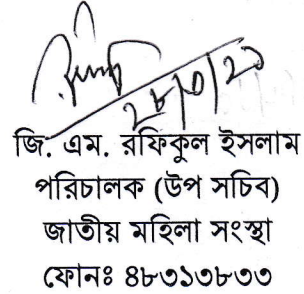 ২৮/৩/২৩
জি. এম. রফিকুল ইসলাম
পরিচালক (উপ সচিব)
জাতীয় মহিলা সংস্থা
ফোনঃ ৪৮৩১৩৮৩৩